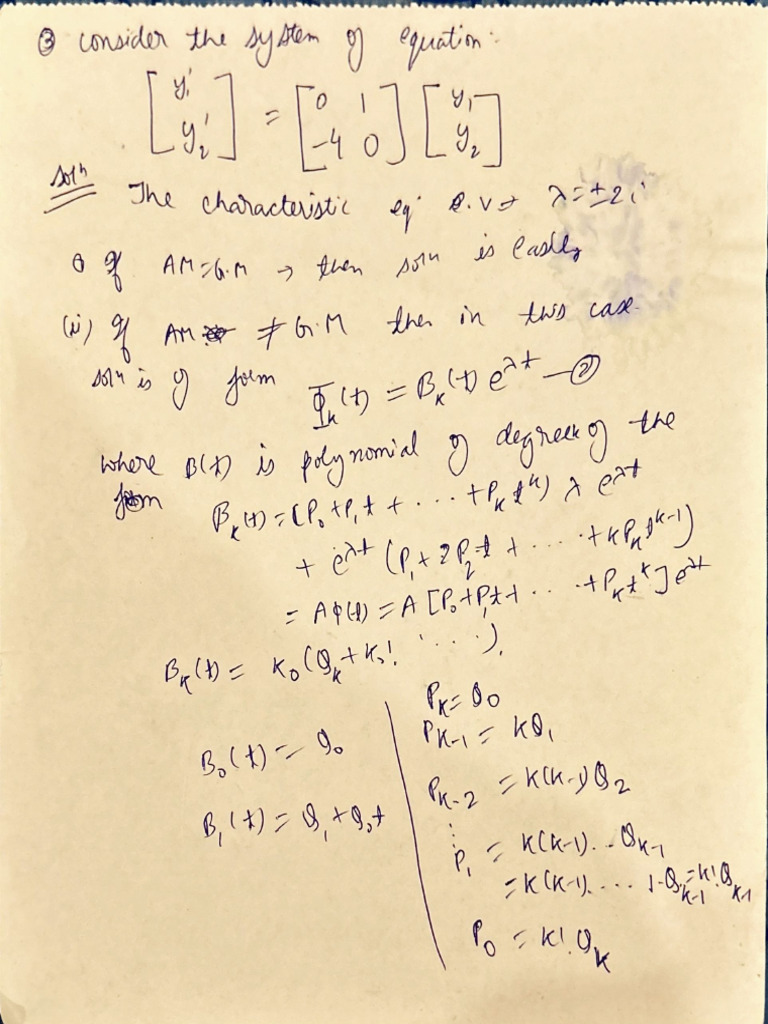 ③ consider the system of equation:
[y₁' y₂'] = [0 1 -4 0] [y₁ y₂]
Solⁿ The characteristic eqⁿ e.v → λ = ±2i
① If AM=G.M → then solⁿ is easily
(ii) If AM ≠ G.M then in this case
solⁿ is of form Φₖ(t) = Bₖ(t) e^{λt} —②
where B(t) is polynomial of degree k of the
form Bₖ(t) = (P₀+P₁t + .... +Pₖtᵏ) λ e^{λt}
+ e^{λt} (P₁ + 2P₂t + .... + kPₖtᵏ⁻¹)
= Aφ(t) = A [P₀+P₁t+ .... +Pₖtᵏ] e^{λt}
Bₖ(t) = K₀(Qₖ+K₁! ....).
B₀(t) = Q₀
B₁(t) = Q₁ + Q₀t
Pₖ = Q₀
Pₖ₋₁ = kQ₁
Pₖ₋₂ = k(k-1)Q₂
⋮
P₁ = k(k-1)...Qₖ₋₁
= k(k-1).... 1·Qₖ₋₁ = k!Qₖ₋₁
P₀ = k! Qₖ